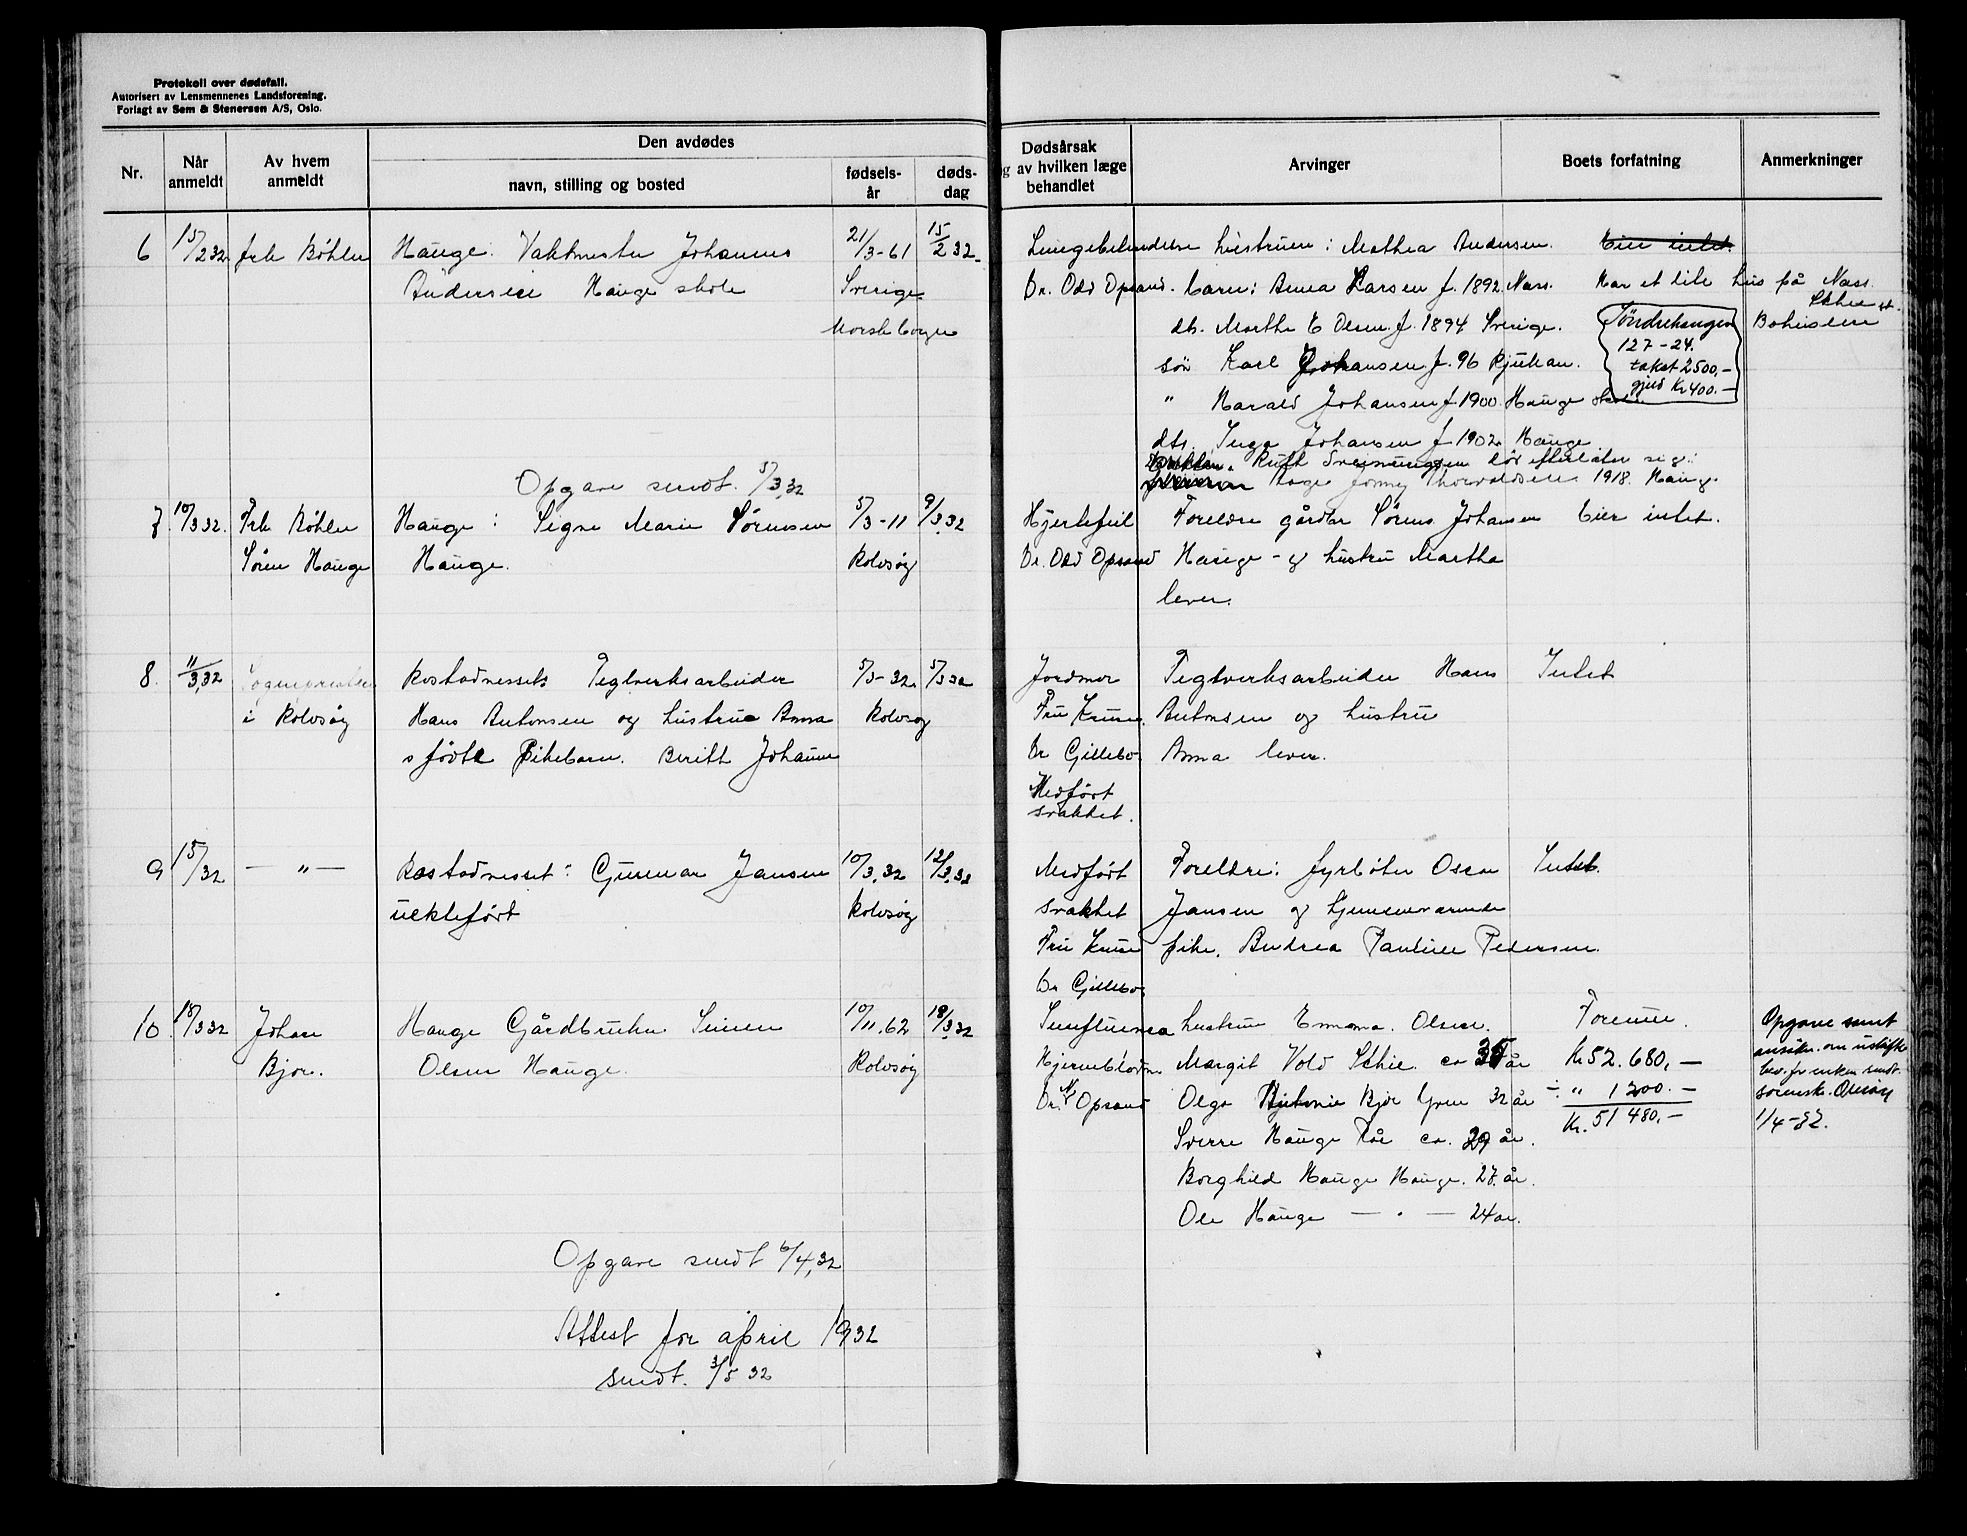 Protokoll over dødsfall.
Autorisert av Lensmennenes Landsforening.
Forlagt av Sem & Stenersen A/S, Oslo.
Nr.
Når anmeldt
Av hvem anmeldt
Den avdødes
navn, stilling og bosted
fødselsår
dødsdag
Dødsårsak
g av hvilken læge
behandlet
Arvinger
Boets forfatning
Anmerkninger
6 15/2 32. frk Bøhler Hauge. Vaktmester Johannes 21/3-61 15/2 32.
Andersen Hauge skole Sverige
Norsk borger
Lungebetendelse hustruen: Mathea Andersen. Eier intet.
Dr. Odd Opsand. barn: Anna Larsen f. 1892. Næss. Har et lite hus på Næss
Skhie st.
dtr. Marthe E Olsen. f. 1894 Sverige. Tøndrehaugen Bohuslen
127-24.
søn Karl Johansen f. 96 Rjukan. takst 2500.-
gjeld Kr 400.-
" Harald Johansen f 1900. Hauge skole
dtr. Inga Johansen f 1902. Hauge
Ruth død efterlater sig:
Aage Jonny Thorvaldsen. 1918. Hauge
Opgave sendt. 5/3,32
7 10/3 32. Frk Bøhler Hauge: Signe Marie Sørensen 5/3-11 9/3.32
Søren Hauge Hauge. Rolvsøy
Hjertefeil Foreldre gårdbr Sørens Johansen Eier intet.
Dr. Odd Opsand Hauge - og hustru Martha
lever.
8. 11/3,32 Sognepresten Rostadnesset: Teglverksarbeider 5/3-32. 5/3 32
i Rolvsøy Hans Antonsen og hustrue Anna Rolvsøy
s fødte Pikebarn. Berith Johanne
Jordmor Teglverksarbeider Hans Intet
Fru Kruse. Antonsen og hustru
Dr Gillebo. Anna lever.
Medført
svakhet.
9 15/32 — " — Rostadnesset: Gunnar Jansen 10/3,32 12/3,32
uekteført Rolvsøy
Medført Foreldre: fyrbøter Oscar Intet.
svakhet Jansen og hjemmeværende
Fru Kruse pike. Andrea Pauline Pedersen.
Dr Gillebo.
10. 18/3 32 Johan Hauge Gårdbruker Simen 10/11.62 18/3,32
Bjor. Olsen Hauge. Rolvsøy
Innfluensa hustrue Emma. Olsen. Formue. Opgave samt
Hjerneblødn. Margit Vold Skhie. ca 35 år Kr 52.680,— ansøkn. om uskifte
bev. for enken sendt
Dr. N Opsand Olga Bjor 32 år ÷ " 1200.— sorenskr. Onsøy
Kr. 51 480,— 1/4-32.
Sverre Hauge Råe ca. 29 år.
Borghild Hauge Hauge. 27. år.
Ole Hauge — " — 24 år.
Opgave sendt 6/4,32
Attest for april 1932
sendt. 3/5 32